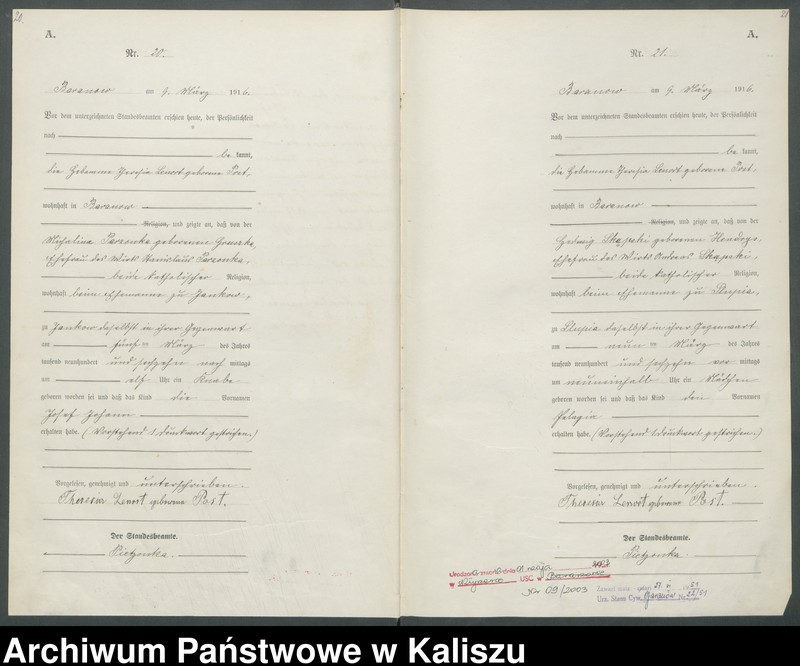 20.
A.
Nr. 20.
Baranow am 9. März 1916.
Vor dem unterzeichneten Standesbeamten erschien heute, der Persönlichkeit
nach
be kannt,
die Hebamme Theresia Lenort geborene Post,
wohnhaft in Baranow
Religion, und zeigte an, daß von der
Michalina Parzonka geborenen
Ehefrau des Wirts Stanislaus Parzonka,
beide katholischer Religion,
wohnhaft beim Ehemanne zu Jankow,
zu Jankow daselbst in ihrer Gegenwart
am fünften März des Jahres
tausend neunhundert und sechzehn nach mittags
um elf Uhr ein Knabe
geboren worden sei und daß das Kind die Vornamen
Josef Johann
erhalten habe. (Vorstehend 1 Druckwort gestrichen.)
Vorgelesen, genehmigt und unterschrieben.
Theresia Lenort geborene Post.
Der Standesbeamte.
Pietzonka.
21
A.
Nr. 21.
Baranow am 9. März 1916.
Vor dem unterzeichneten Standesbeamten erschien heute, der Persönlichkeit
nach
be kannt,
die Hebamme Theresia Lenort geborene Post,
wohnhaft in Baranow
Religion, und zeigte an, daß von der
Hedwig Skąpski geborenen
Ehefrau des Wirts Andreas Skąpski,
beide katholischer Religion,
wohnhaft beim Ehemanne zu Slupia,
zu Slupia daselbst in ihrer Gegenwart
am neunten März des Jahres
tausend neunhundert und sechzehn vor mittags
um neuneinhalb Uhr ein Mädchen
geboren worden sei und daß das Kind den Vornamen
Pelagia
erhalten habe. (Vorstehend 1 Druckwort gestrichen.)
Vorgelesen, genehmigt und unterschrieben.
Theresia Lenort geborene Post.
Der Standesbeamte.
Pietzonka.
maja
w USC w Baranowie
Nr 09/2003
Urz. Stanu Cyw. Baranów
Archiwum Państwowe w Kaliszu